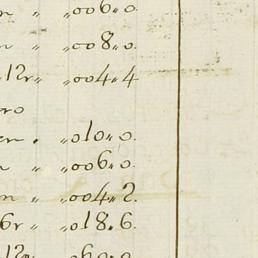 „ „006„0.
n „ „008„0.
12r„ „004„4
ro
en . „010„0.
n „ „006„0.
n „ „004„2.
6r „ „018„6.